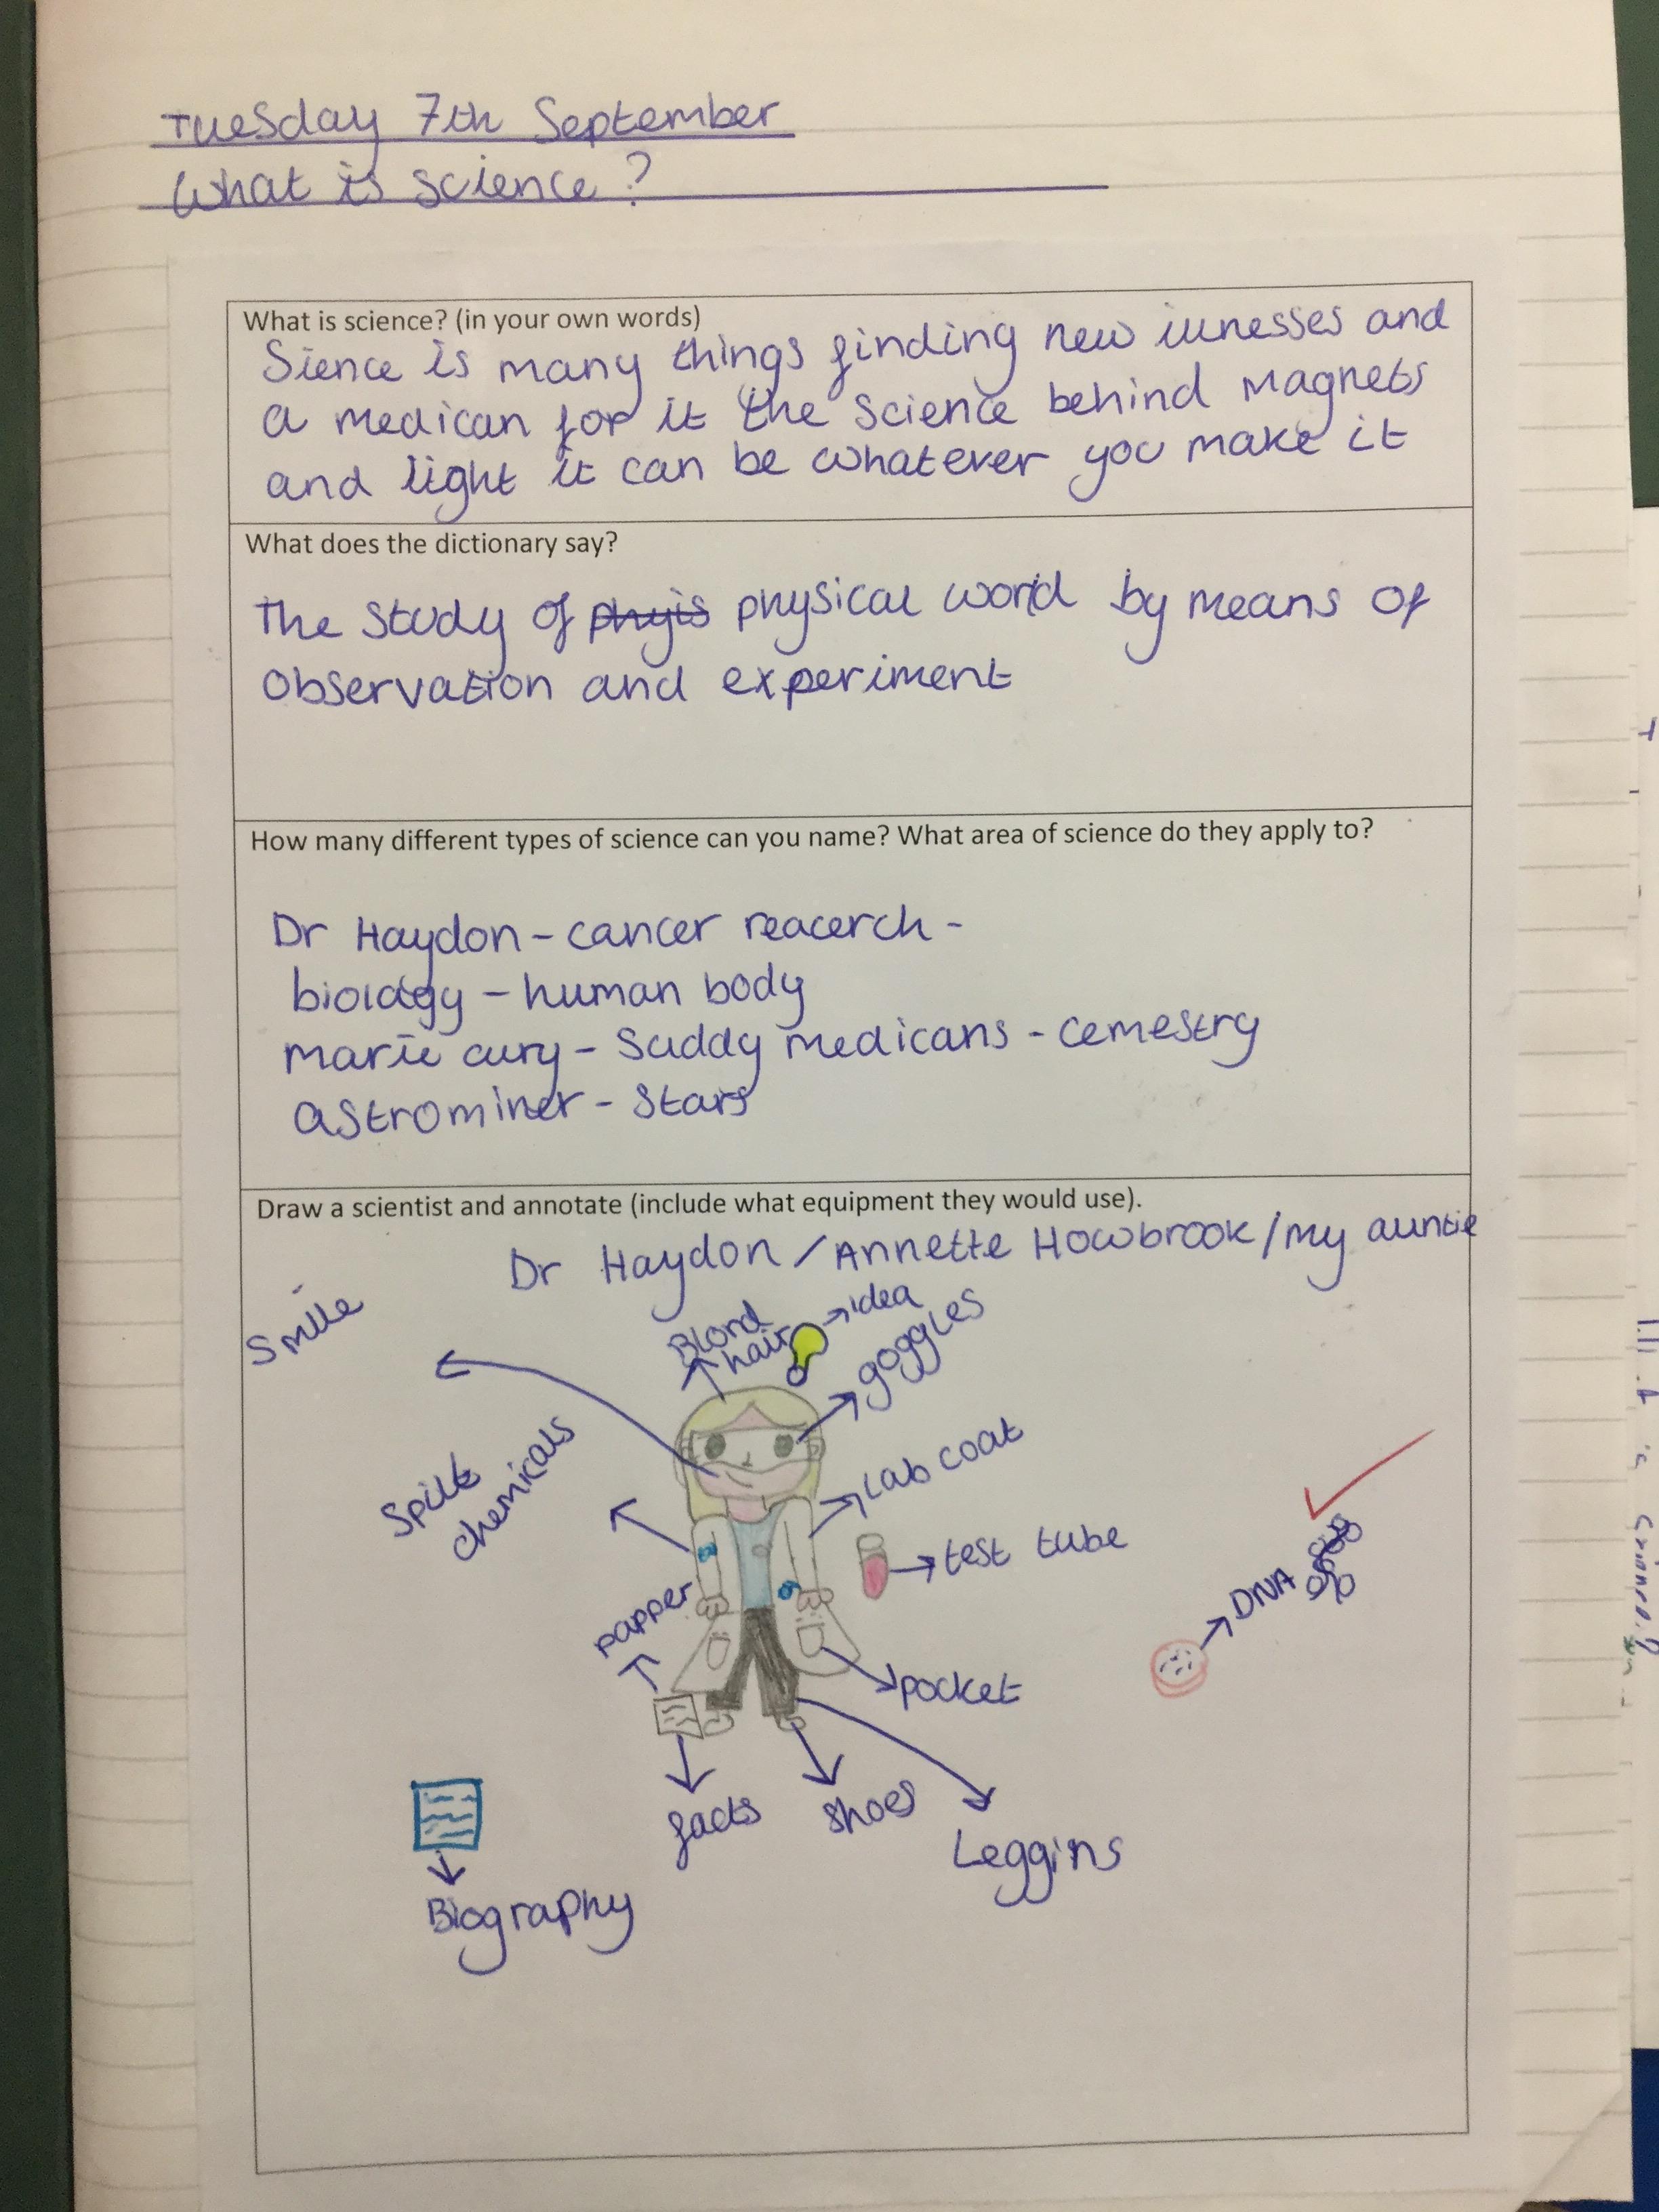 Tuesday 7th September
What is science?
What is science? (in your own words)
Sience is many things finding new illnesses and
a medican for it the science behind magnets
and light it can be whatever you make it
What does the dictionary say?
The study of phyis physical world by means of
observation and experiment
How many different types of science can you name? What area of science do they apply to?
Dr Haydon - cancer reacerch -
biology - human body
marie cury - Suddy medicans - cemestry
astrominer - stars
Draw a scientist and annotate (include what equipment they would use).
Dr Haydon / Annette Howbrook / my auntie
Smile
Blond
hair
idea
goggles
Spilt
chemicals
Lab coat
test tube
DNA
papper
pocket
facts
shoes
Leggins
Biography